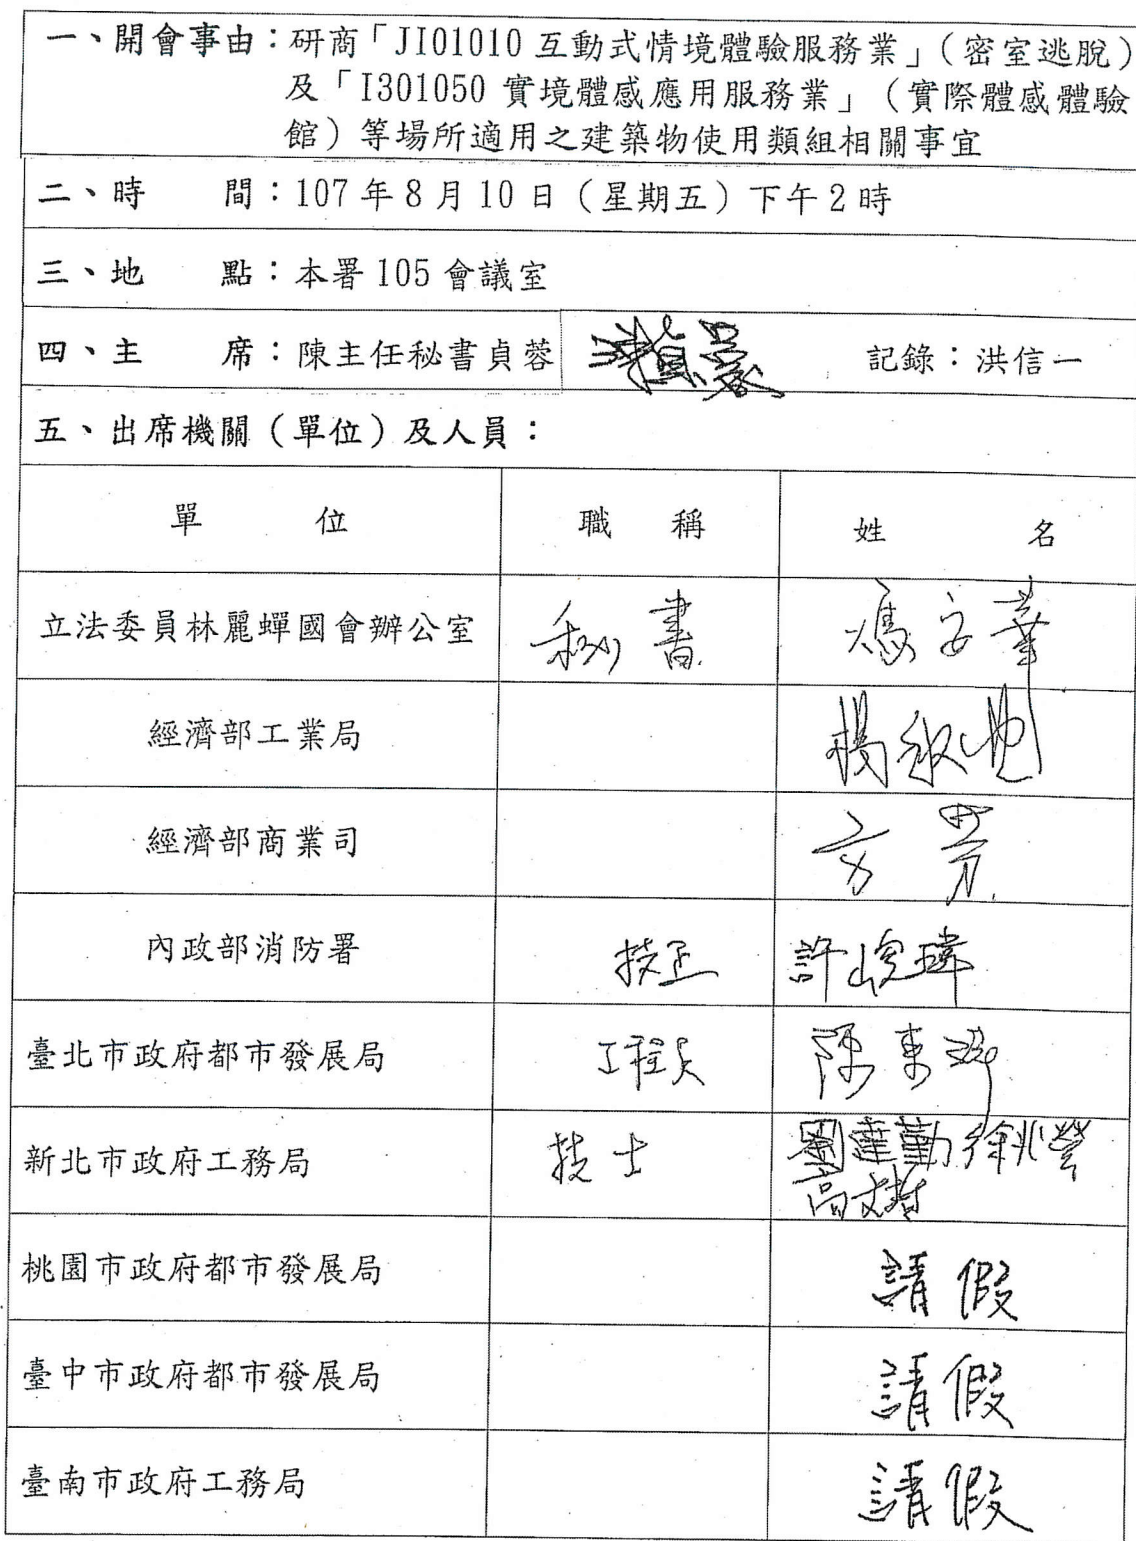 一、開會事由：研商「JI01010 互動式情境體驗服務業」（密室逃脫）
及「I301050 實境體感應用服務業」（實際體感體驗
館）等場所適用之建築物使用類組相關事宜
二、時　　間：107 年 8 月 10 日（星期五）下午 2 時
三、地　　點：本署 105 會議室
四、主　　席：陳主任秘書貞蓉　　記錄：洪信一
五、出席機關（單位）及人員：
單　　位　職　稱　姓　　名
立法委員林麗蟬國會辦公室　秘書　馮安華
經濟部工業局　楊
經濟部商業司　方芳
內政部消防署　技正　許峻瑋
臺北市政府都市發展局　工程員　陳東
新北市政府工務局　技士　劉達勤 徐兆瑩
高文哲
桃園市政府都市發展局　請假
臺中市政府都市發展局　請假
臺南市政府工務局　請假